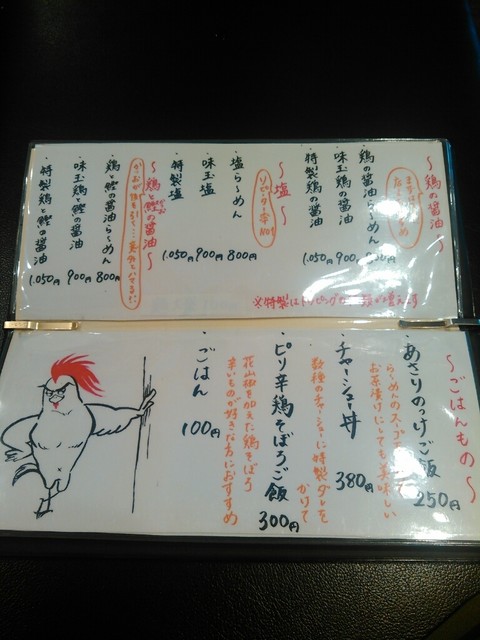 ～鶏の醤油～
・鶏の醤油らーめん
・味玉鶏の醤油 900
・特製鶏の醤油 1.050円
～塩～
リピーター率No1
・塩らーめん 800円
・味玉塩 900円
・特製塩 1.050
～鶏と鰹の醤油～
・鶏と鰹の醤油らーめん 800円
・味玉鶏と鰹の醤油 900円
・特製鶏と鰹の醤油 1.050円
※特製はトッピングの
～ごはんもの～
・あさりのっけご飯 250円
らーめんのスープ
お茶漬けにしても美味しい
・チャーシュー丼 380円
数種のチャーシューに特製ダレを
かけて
・ピリ辛鶏そぼろご飯 300円
花山椒を加えた鶏そぼろ
辛いものが好きな方におすすめ
・ごはん 100円